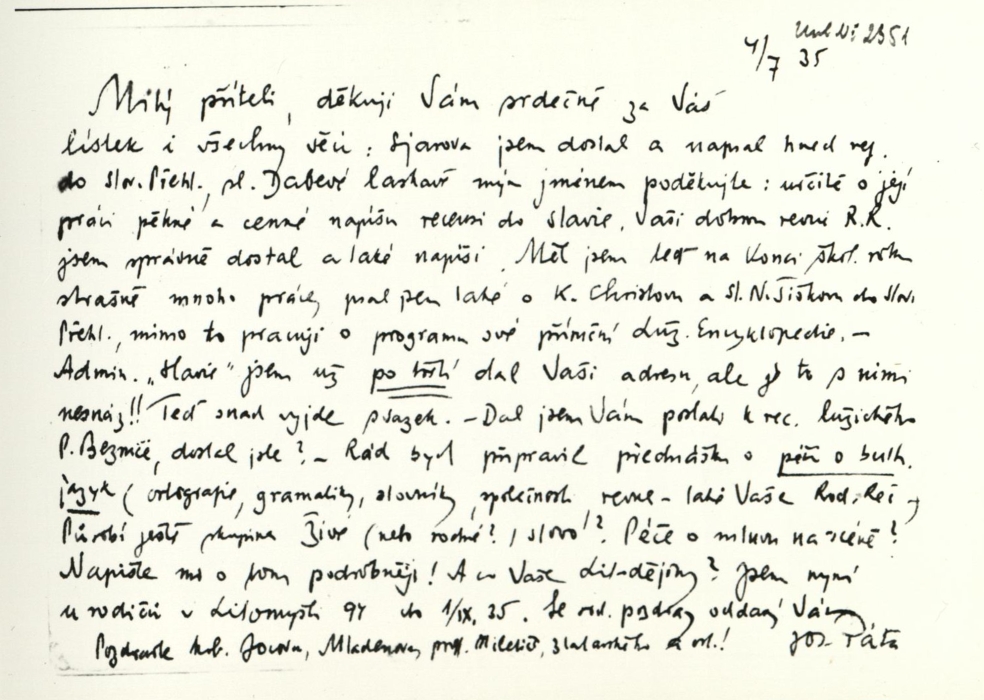 4/7 35
Milý příteli, děkuji Vám srdečně za Váš
lístek i všechny věci: Sjarova jsem dostal a napsal hned
do Slov. Přehl., sl. Dabevé laskavě mým jménem poděkujte: určitě o její
práci pěkné a cenné napíšu recensi do Slavie. Vaši dobrou revui R.R.
jsem správně dostal a také napíši. Měl jsem teď na konci škol. roku
strašně mnoho práce, psal jsem také o K. Christovu a Sl. N. Šiškovu do Slov.
Přehl., mimo to pracuji o programu své příruční Luž. Encyklopedie. –
Admin. „Slavie" jsem už po třetí dal Vaši adresu, ale je to s nimi
nesnáz!! Teď snad vyjde svazek. – Dal jsem Vám poslati k rec. lužického
P. Bezruče, dostal jste? – Rád bych připravil přednášku o péči o bulh.
jazyk (ortografie, gramatiky, slovníky, společnosti revue – také Vaše Rod. Reč –
Působí ještě skupina Živé (nebo rodné?) slovo!? Péče o mluvu na scéně?
Napište mi o tom podrobněji! A co Vaše Lit-dějiny? Jsem nyní
u rodičů v Litomyšli 94 do 1/IX. 35. Se srd. pozdrav oddaný Vám
Jos. Páta
Pozdravte kol. Jocova, Mladenova, prof. Miletiče, Zlatarského a ost.!